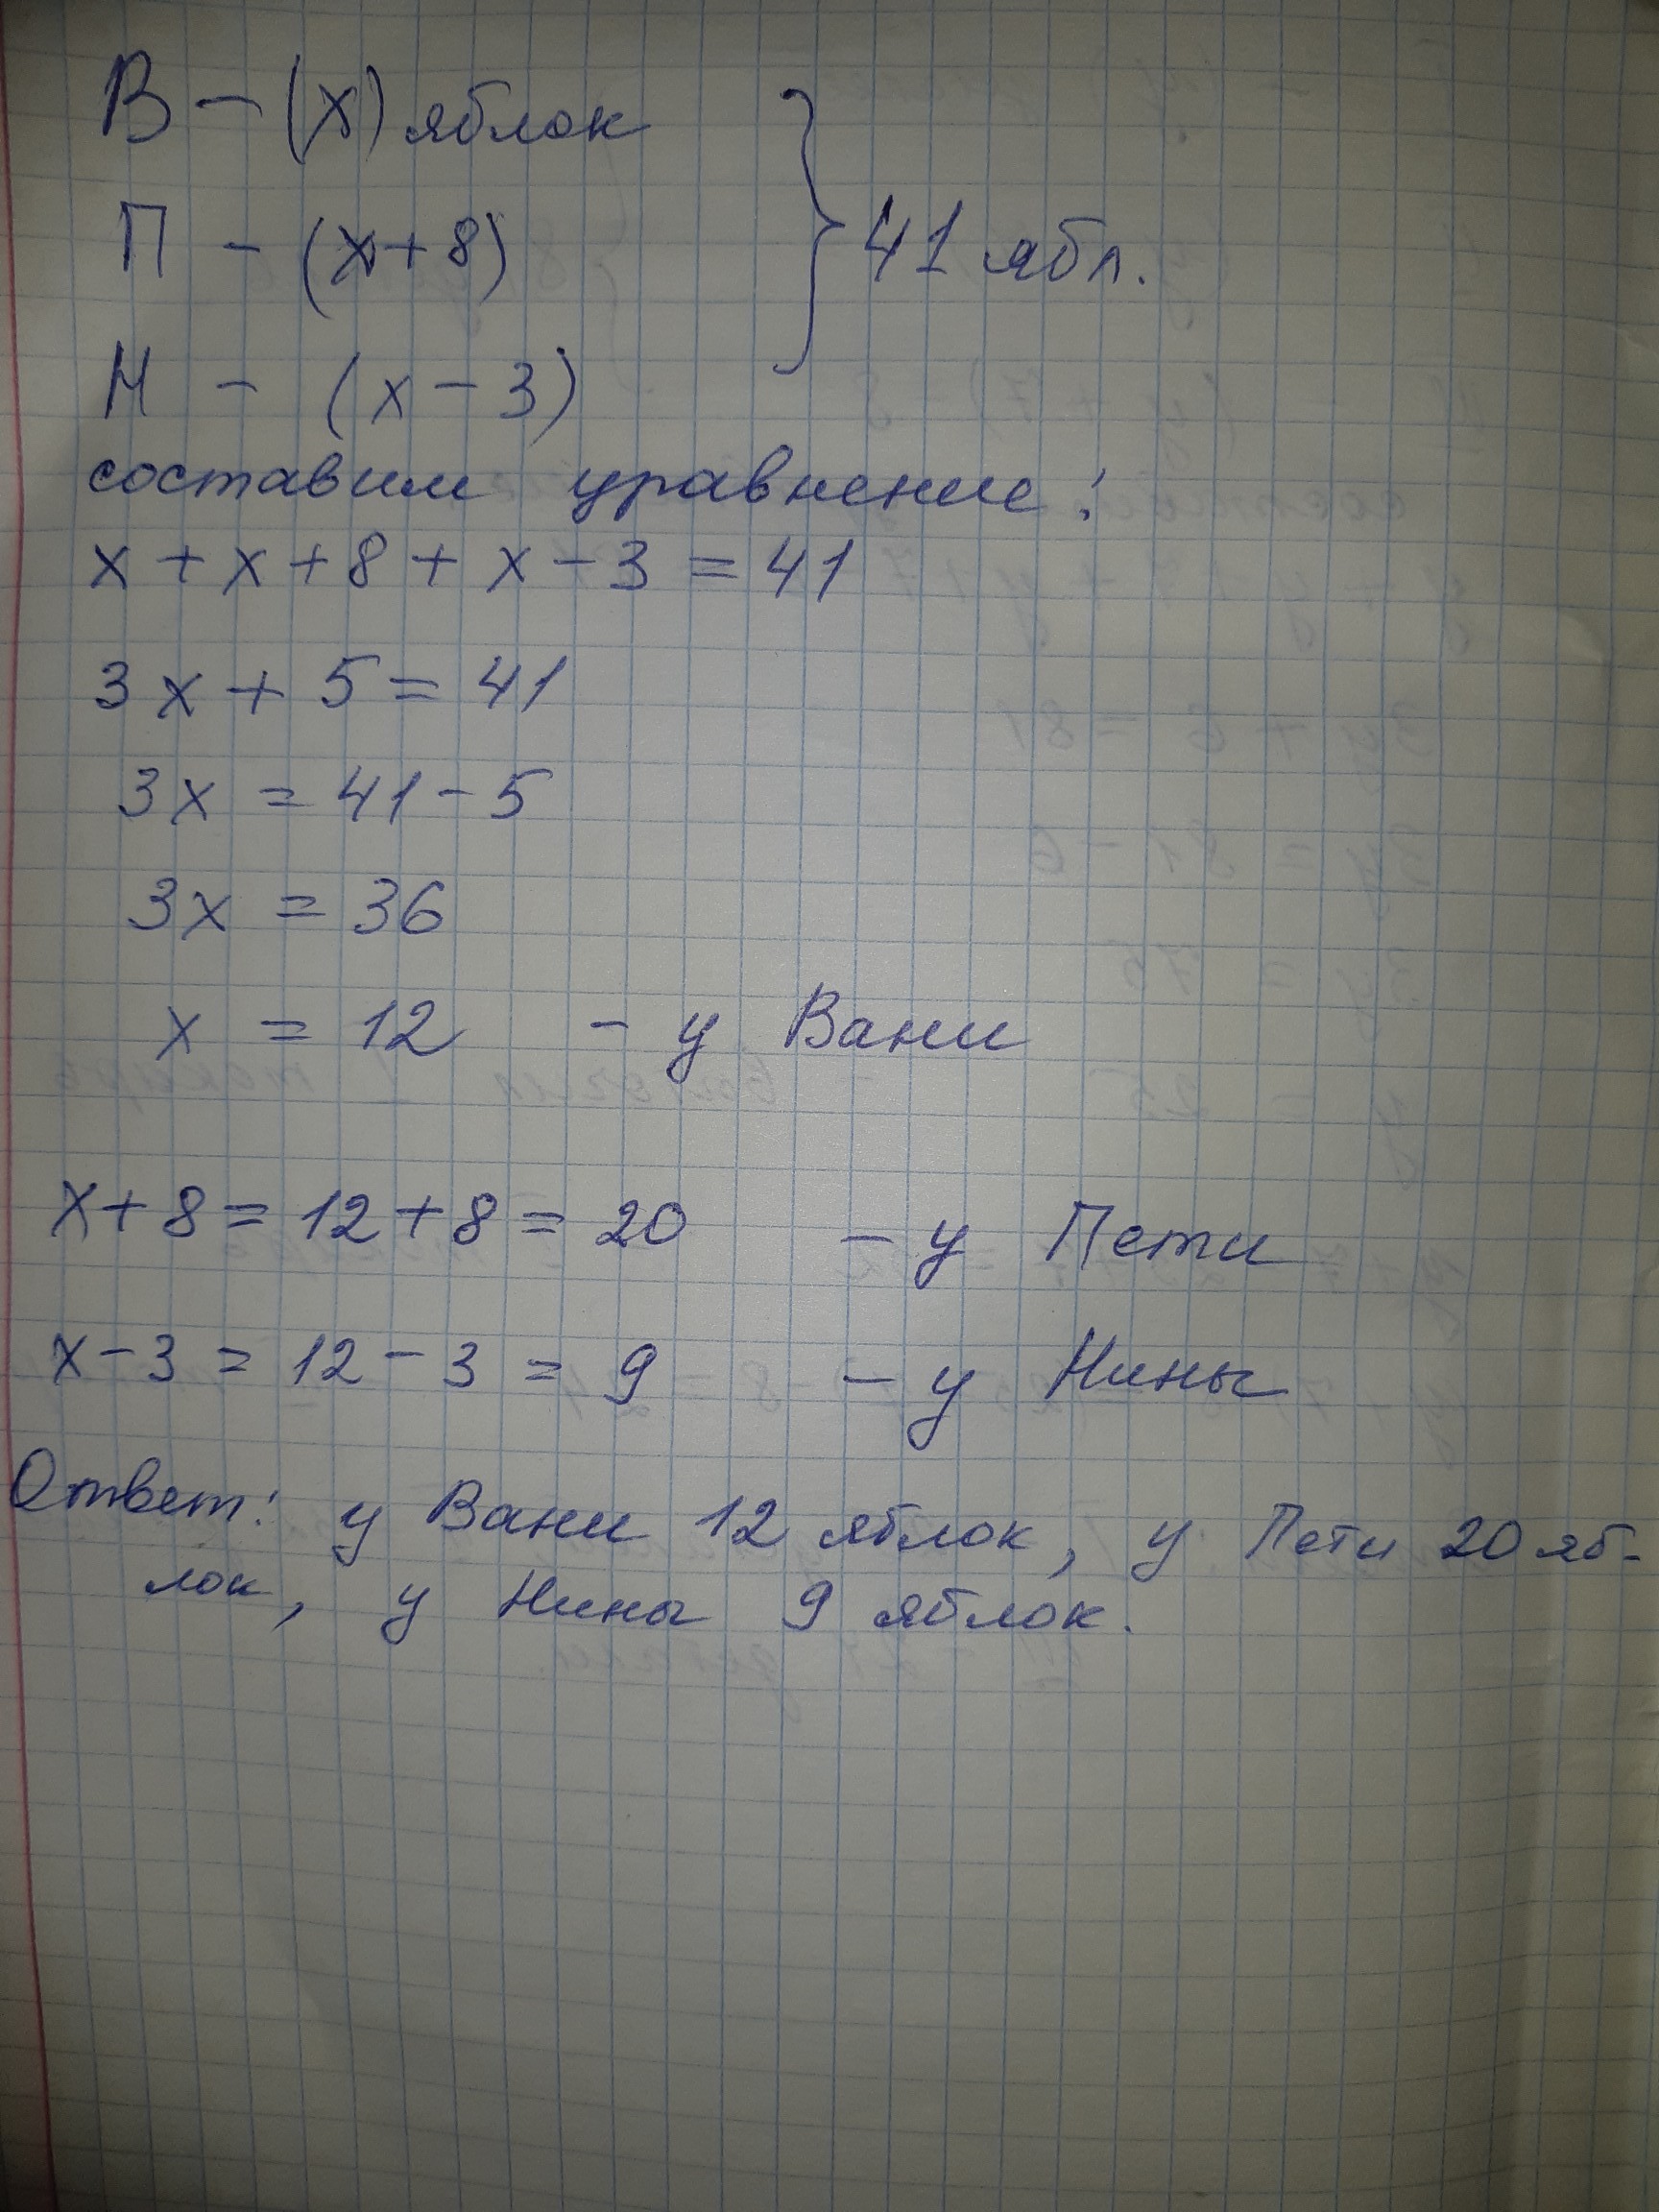 В - (х) яблок
П - (х+8)
Н - (х - 3)
} 41 ябл.
составим уравнение:
х + х + 8 + х - 3 = 41
3х + 5 = 41
3х = 41 - 5
3х = 36
х = 12 - у Вани
х + 8 = 12 + 8 = 20 - у Пети
х - 3 = 12 - 3 = 9 - у Нины
Ответ: у Вани 12 яблок, у Пети 20 яб-
лок, у Нины 9 яблок.